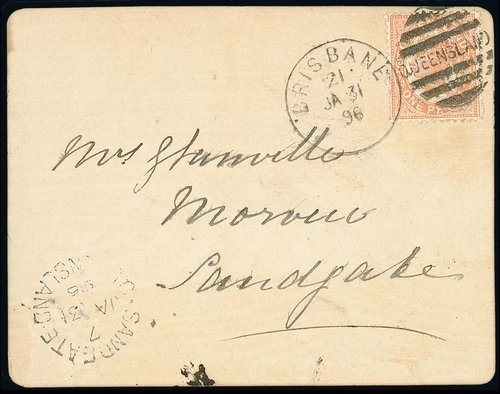 BRISBANE
21
JA 31
96
QUEENSLAND
ONE PE
Mrs
Morven
Sandgate
SANDGATE
7
JA 31
96